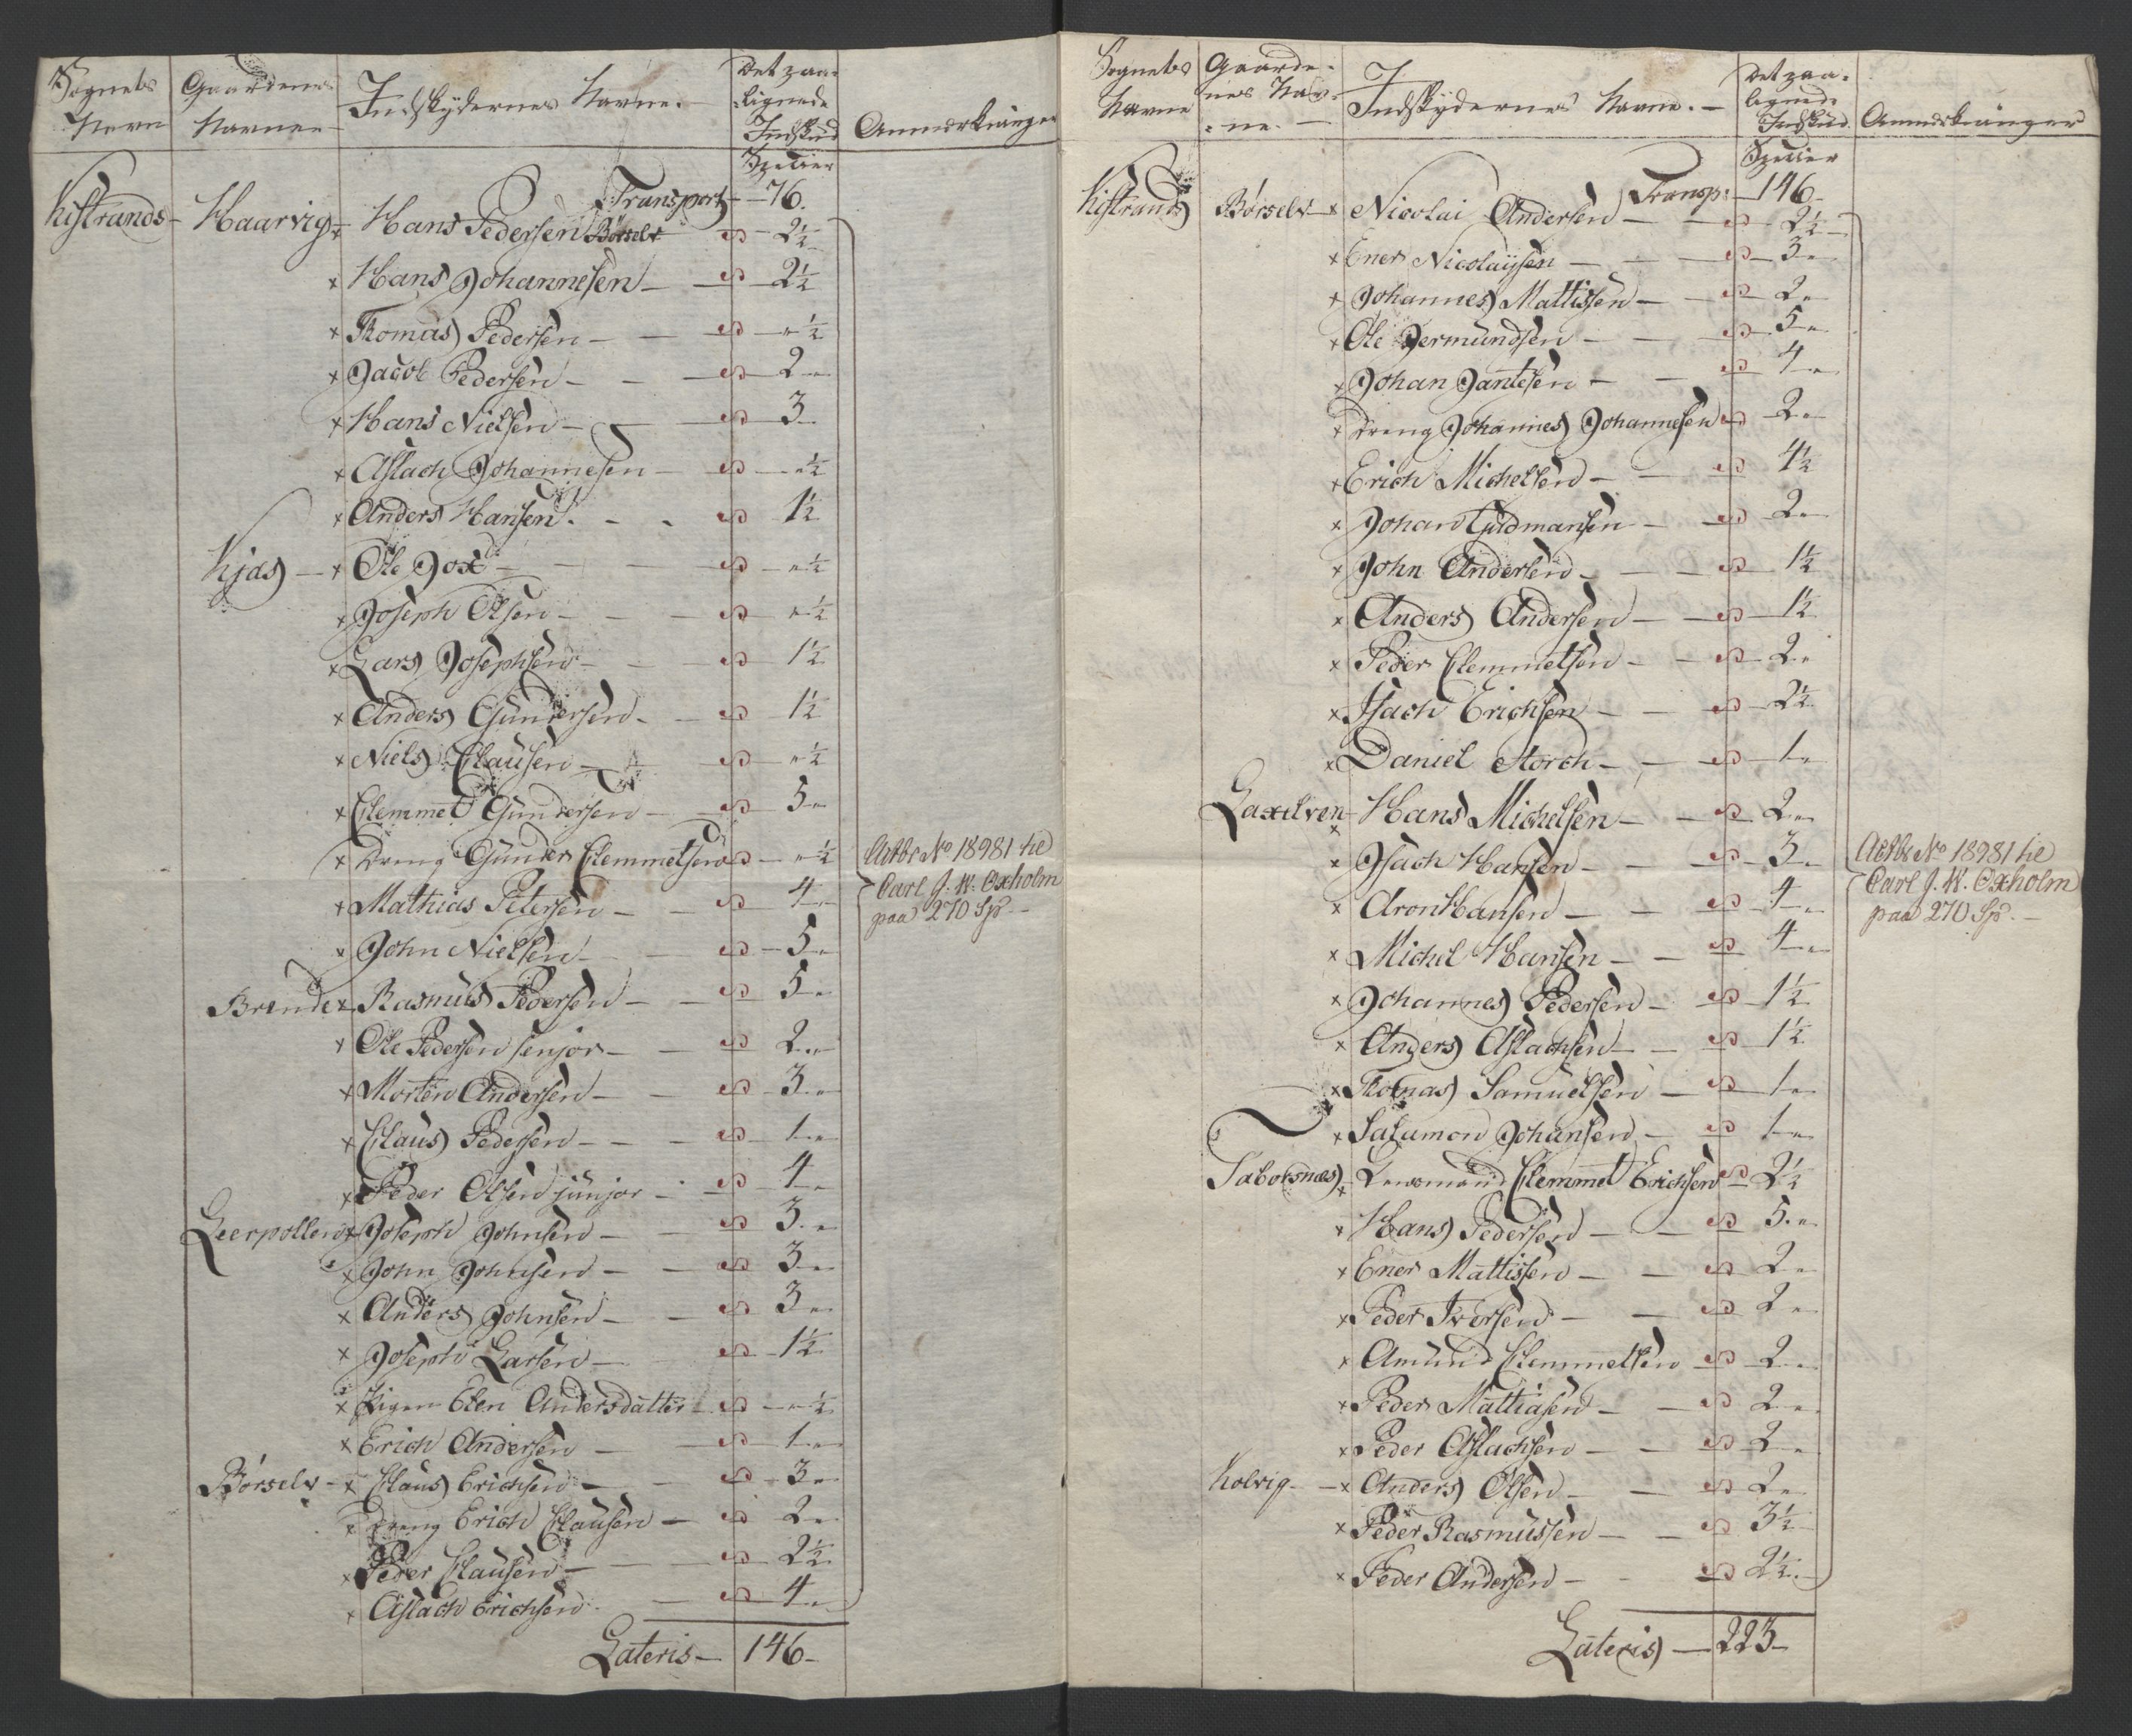 Sognets Navn | Gaardenes Navne | Indskydernes Navne. | Det paalignede Indskud | Anmærkninger
Specier
Transport 76.
Kistrands Haarvig x Hans Pedersen Børselv 2½
x Hans Johannesen 2½
x Thomas Pedersen " ½
x Jacob Pedersen 2 "
x Hans Nielsen 3
x Aslach Johannesen " ½
x Anders Hansen 1½
Kjæs x Ole Jox " ½
x Joseph Olsen " ½
x Lars Josephsen 1½
x Anders Gundersen 1½
x Niels Clausen " ½
x Clemmet Gundersen 5 "
x Dreng Gunder Clemmetsen " ½
Actbr No 18981 til
x Mathias Petersen 4 "
Carl J. W. Oxholm
paa 270 Sp
x John Nielsen 5 "
Brende x Rasmus Pedersen 5 "
x Ole Pedersen senjor 2 "
x Morten Andersen 3 "
x Claus Pedersen 1 "
x Peder Olsen junjor 4 "
Leerpollen x Joseph Johnsen 3 "
x John Johnsen 3 "
x Anders Johnsen 3 "
x Joseph Larsen 1½
x Pigen Elen Andersdatter " ½
x Erich Andersen 1 "
Børselv x Claus Erichsen 3 "
x Dreng Erich Clausen 2 "
x Peder Clausen 2½
x Aslach Erichsen 4 "
Lateris 146
Sognets Navne | Gaardenes Navne. | Indskydernes Navne. | Det paalignede Indskud | Anmærkninger
Specier
Transp: 146
Kistrands Børselv x Nicolai Andersen 2½
x Ener Nicolaysen 3 "
x Johannes Mattissen 2 "
x Ole Jermundsen 5 "
x Johan Jantesen 4 "
x Dreng Johannes Johannesen 2 "
x Erich Michelsen 4½
x Johan Guldmansen 2 "
x John Andersen 1½
x Anders Andersen 1½
x Peder Clemmetsen 2 "
x Isach Erichsen 2½
x Daniel Storch 1 "
Laxelven x Hans Michelsen 2 "
x Isach Hansen 3 "
Actbr No 18981 til
Carl J. W. Oxholm
x Aron Hansen 4 "
paa 270 Sp.
x Michel Hansen 4 "
x Johannes Pedersen 1½
x Anders Aslachsen 1½
x Thomas Samuelsen 1 "
x Salamon Johansen 1 "
Taborsnæs x Lensmand Clemmet Erichsen 2½
x Hans Pedersen 5 "
x Ener Mattissen 2 "
x Peder Iversen 2 "
x Amund Clemmetsen 2 "
x Peder Mattiasen 2 "
x Peder Aslachsen 2 "
Kolvig x Anders Olsen 2 "
x Peder Rasmussen 3½
x Peder Andersen 2½
Lateris 223